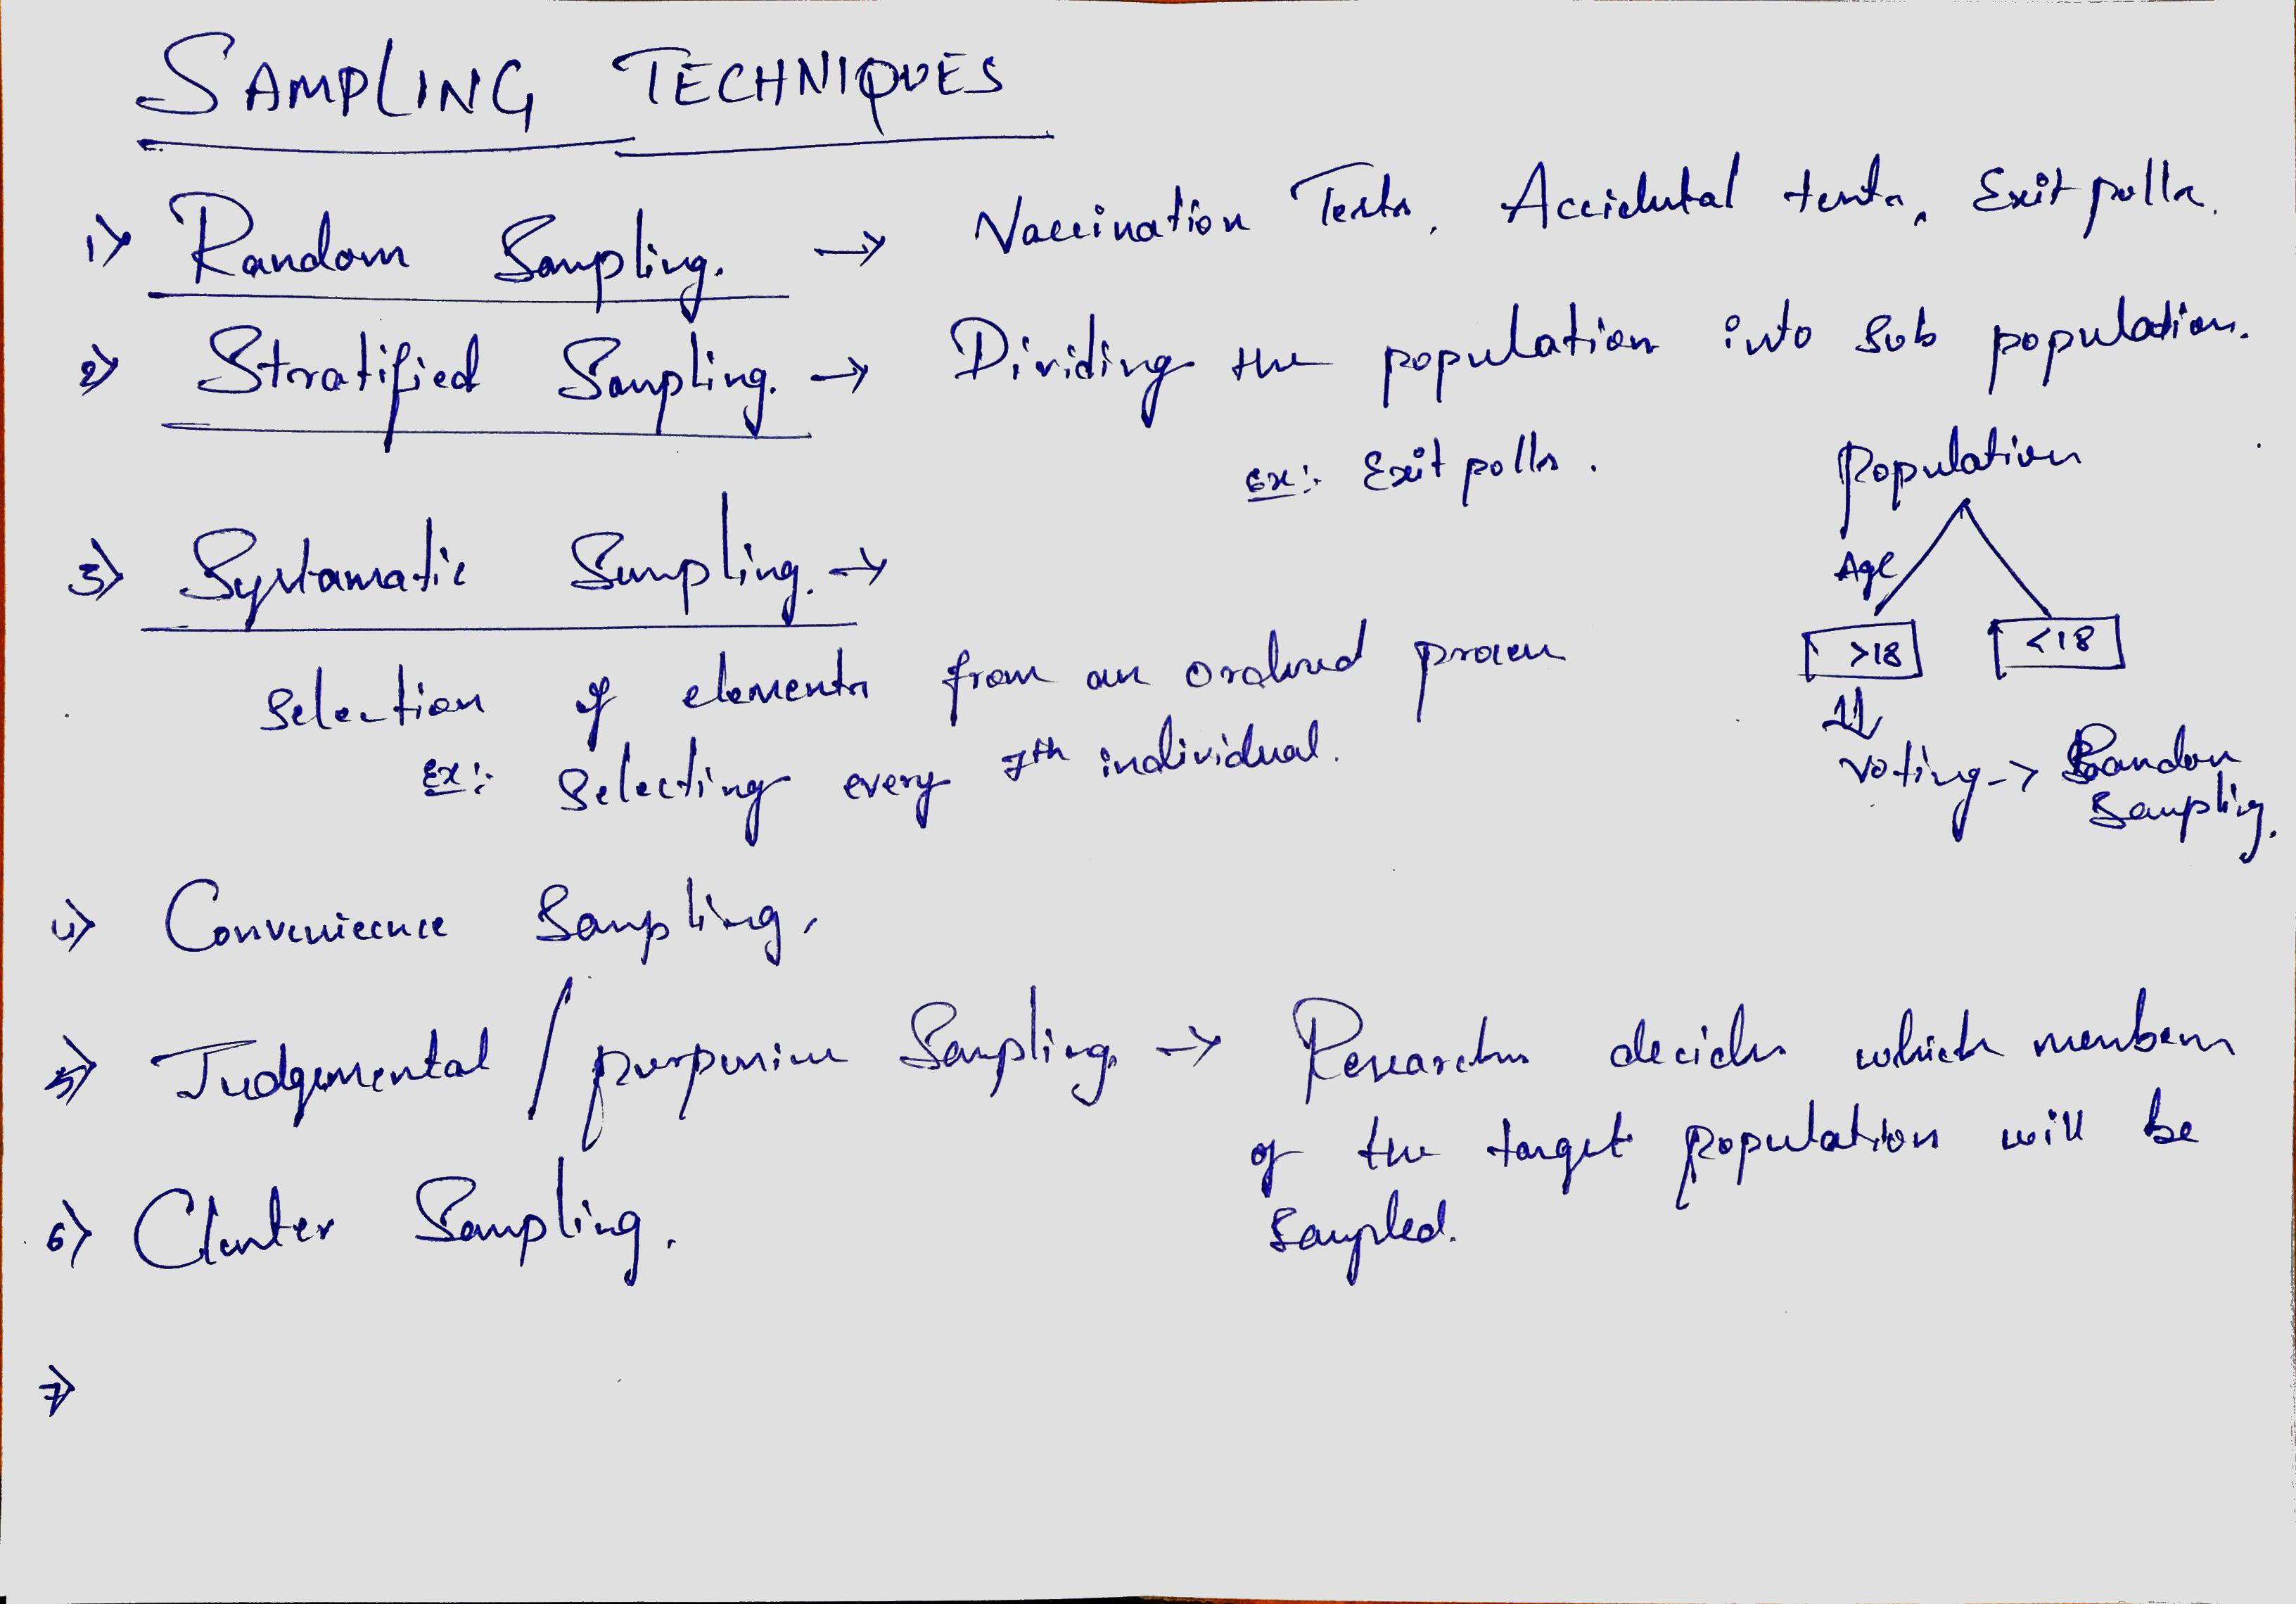 SAMPLING TECHNIQUES
1) Random Sampling. → Vaccination Tests, Accidental tests, Exit polls.
2) Stratified Sampling. → Dividing the population into sub population.
Ex:- Exit polls.
Population
Age
>18 <18
⇓
Voting -> Random
Sampling.
3) Systamatic Sampling. →
Selection of elements from an ordered process
Ex:- Selecting every 7th individual.
4) Convenience Sampling.
5) Judgemental / purposive Sampling. → Researcher decides which members
of the target population will be
sampled.
6) Cluster Sampling.
7)